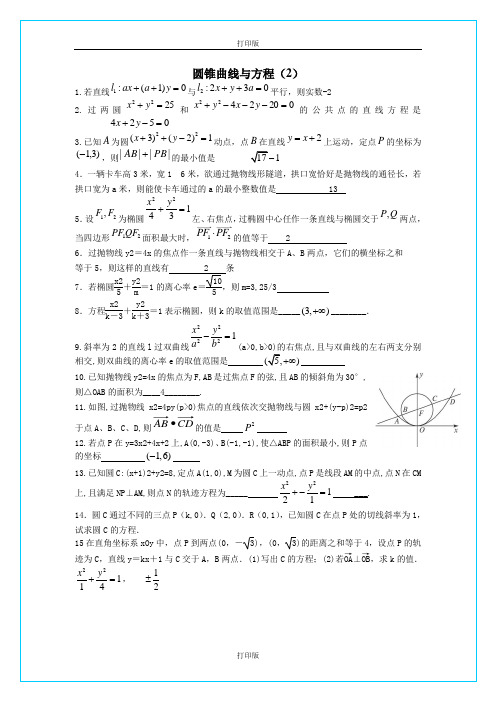 打印版
圆锥曲线与方程（2）
1.若直线l₁:ax+(a+1)y=0与l₂:2x+y+3a=0平行，则实数-2
2.过两圆x²+y²=25 和x²+y²-4x-2y-20=0的公共点的直线方程是
4x+2y-5=0
3.已知A为圆(x+3)²+(y-2)²=1动点，点B在直线y=x+2上运动，定点P的坐标为
(-1,3)，则|AB|+|PB|的最小值是 √17-1
4．一辆卡车高3米，宽1 6米，欲通过抛物线形隧道，拱口宽恰好是抛物线的通径长，若
拱口宽为a米，则能使卡车通过的a的最小整数值是 13
5．设F₁,F₂为椭圆x²/4+y²/3=1左、右焦点，过椭圆中心任作一条直线与椭圆交于P,Q两点，
当四边形PF₁QF₂面积最大时，PF₁·PF₂的值等于 2
6．过抛物线y2＝4x的焦点作一条直线与抛物线相交于A、B两点，它们的横坐标之和
等于5，则这样的直线有 2 条
7．若椭圆x2/5＋y2/m＝1的离心率e＝√10/5，则m=3,25/3
8．方程x2/k－3＋y2/k＋3＝1表示椭圆，则k的取值范围是_____(3,+∞)________．
9.斜率为2的直线l过双曲线x²/a²-y²/b²=1 (a>0,b>0)的右焦点,且与双曲线的左右两支分别
相交,则双曲线的离心率e的取值范围是 (√5,+∞)
10.已知抛物线y2=4x的焦点为F,AB是过焦点F的弦,且AB的倾斜角为30°,
则△OAB的面积为____4________.
11.如图,过抛物线x2=4py(p>0)焦点的直线依次交抛物线与圆x2+(y-p)2=p2
于点A、B、C、D,则AB•CD的值是 P²
12.若点P在y=3x2+4x+2上,A(0,-3)、B(-1,-1),使△ABP的面积最小,则P点
的坐标 (-1,6)
13.已知圆C:(x+1)2+y2=8,定点A(1,0),M为圆C上一动点,点P是线段AM的中点,点N在CM
上,且满足NP⊥AM,则点N的轨迹方程为_____ x²/2+-y²/1=1 ___.
14．圆C通过不同的三点P（k,0）．Q（2,0）．R（0,1），已知圆C在点P处的切线斜率为1，
试求圆C的方程．
15在直角坐标系xOy中，点P到两点(0，－√3)，(0，√3)的距离之和等于4，设点P的轨
迹为C，直线y＝kx＋1与C交于A，B两点．(1)写出C的方程；(2)若OA⊥OB，求k的值．
x²/1+y²/4=1， ±1/2
y
A
B
C
D
F
O
x
打印版